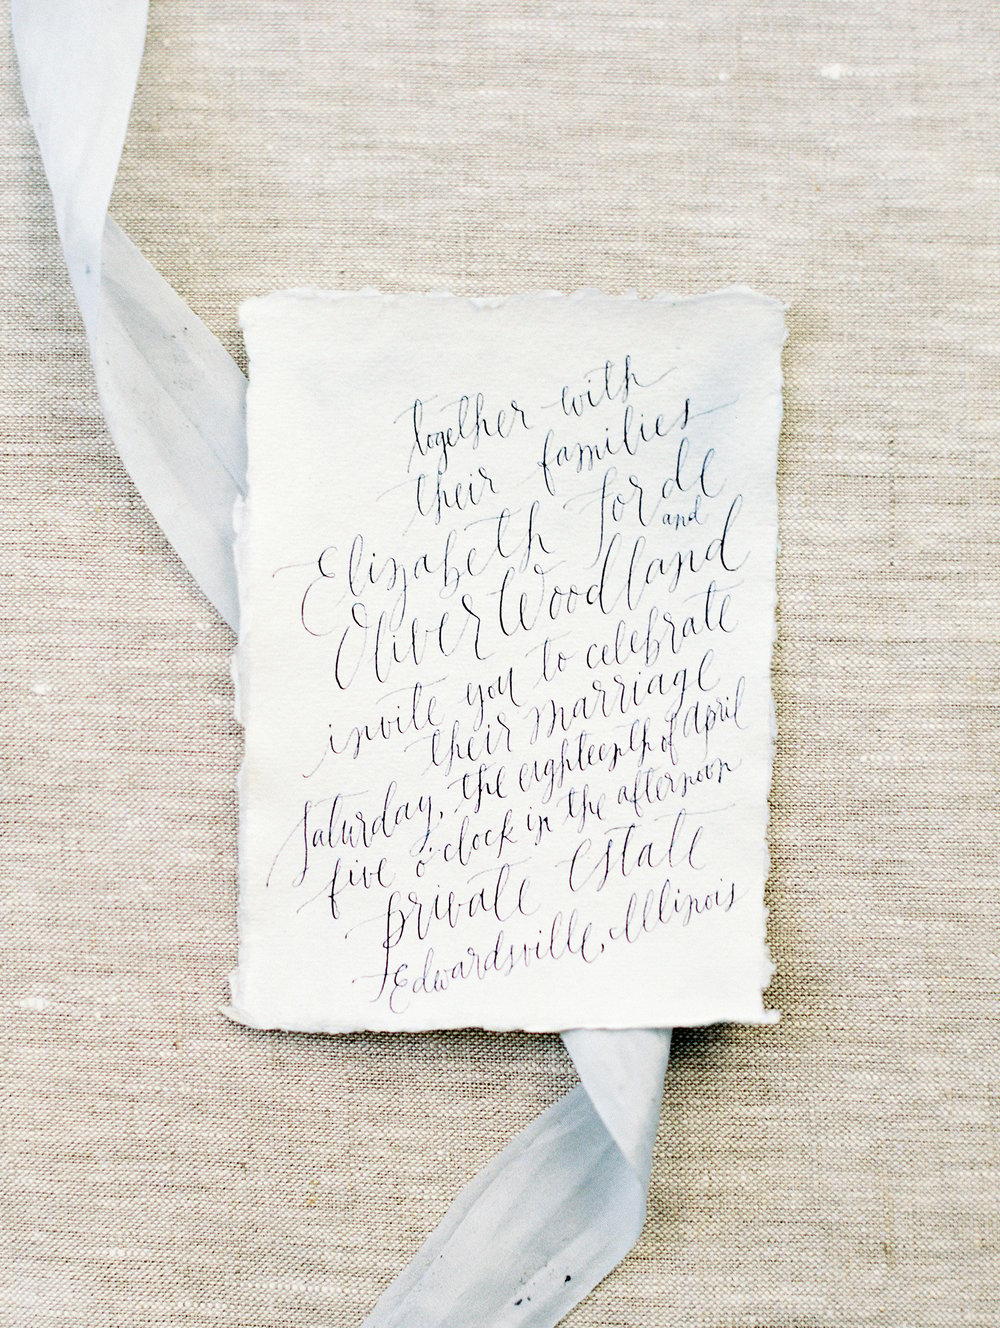 together with
their families
Elizabeth Forde
and
Oliver Woodland
invite you to celebrate
their marriage
Saturday, the eighteenth of April
five o'clock in the afternoon
private estate
Edwardsville, Illinois